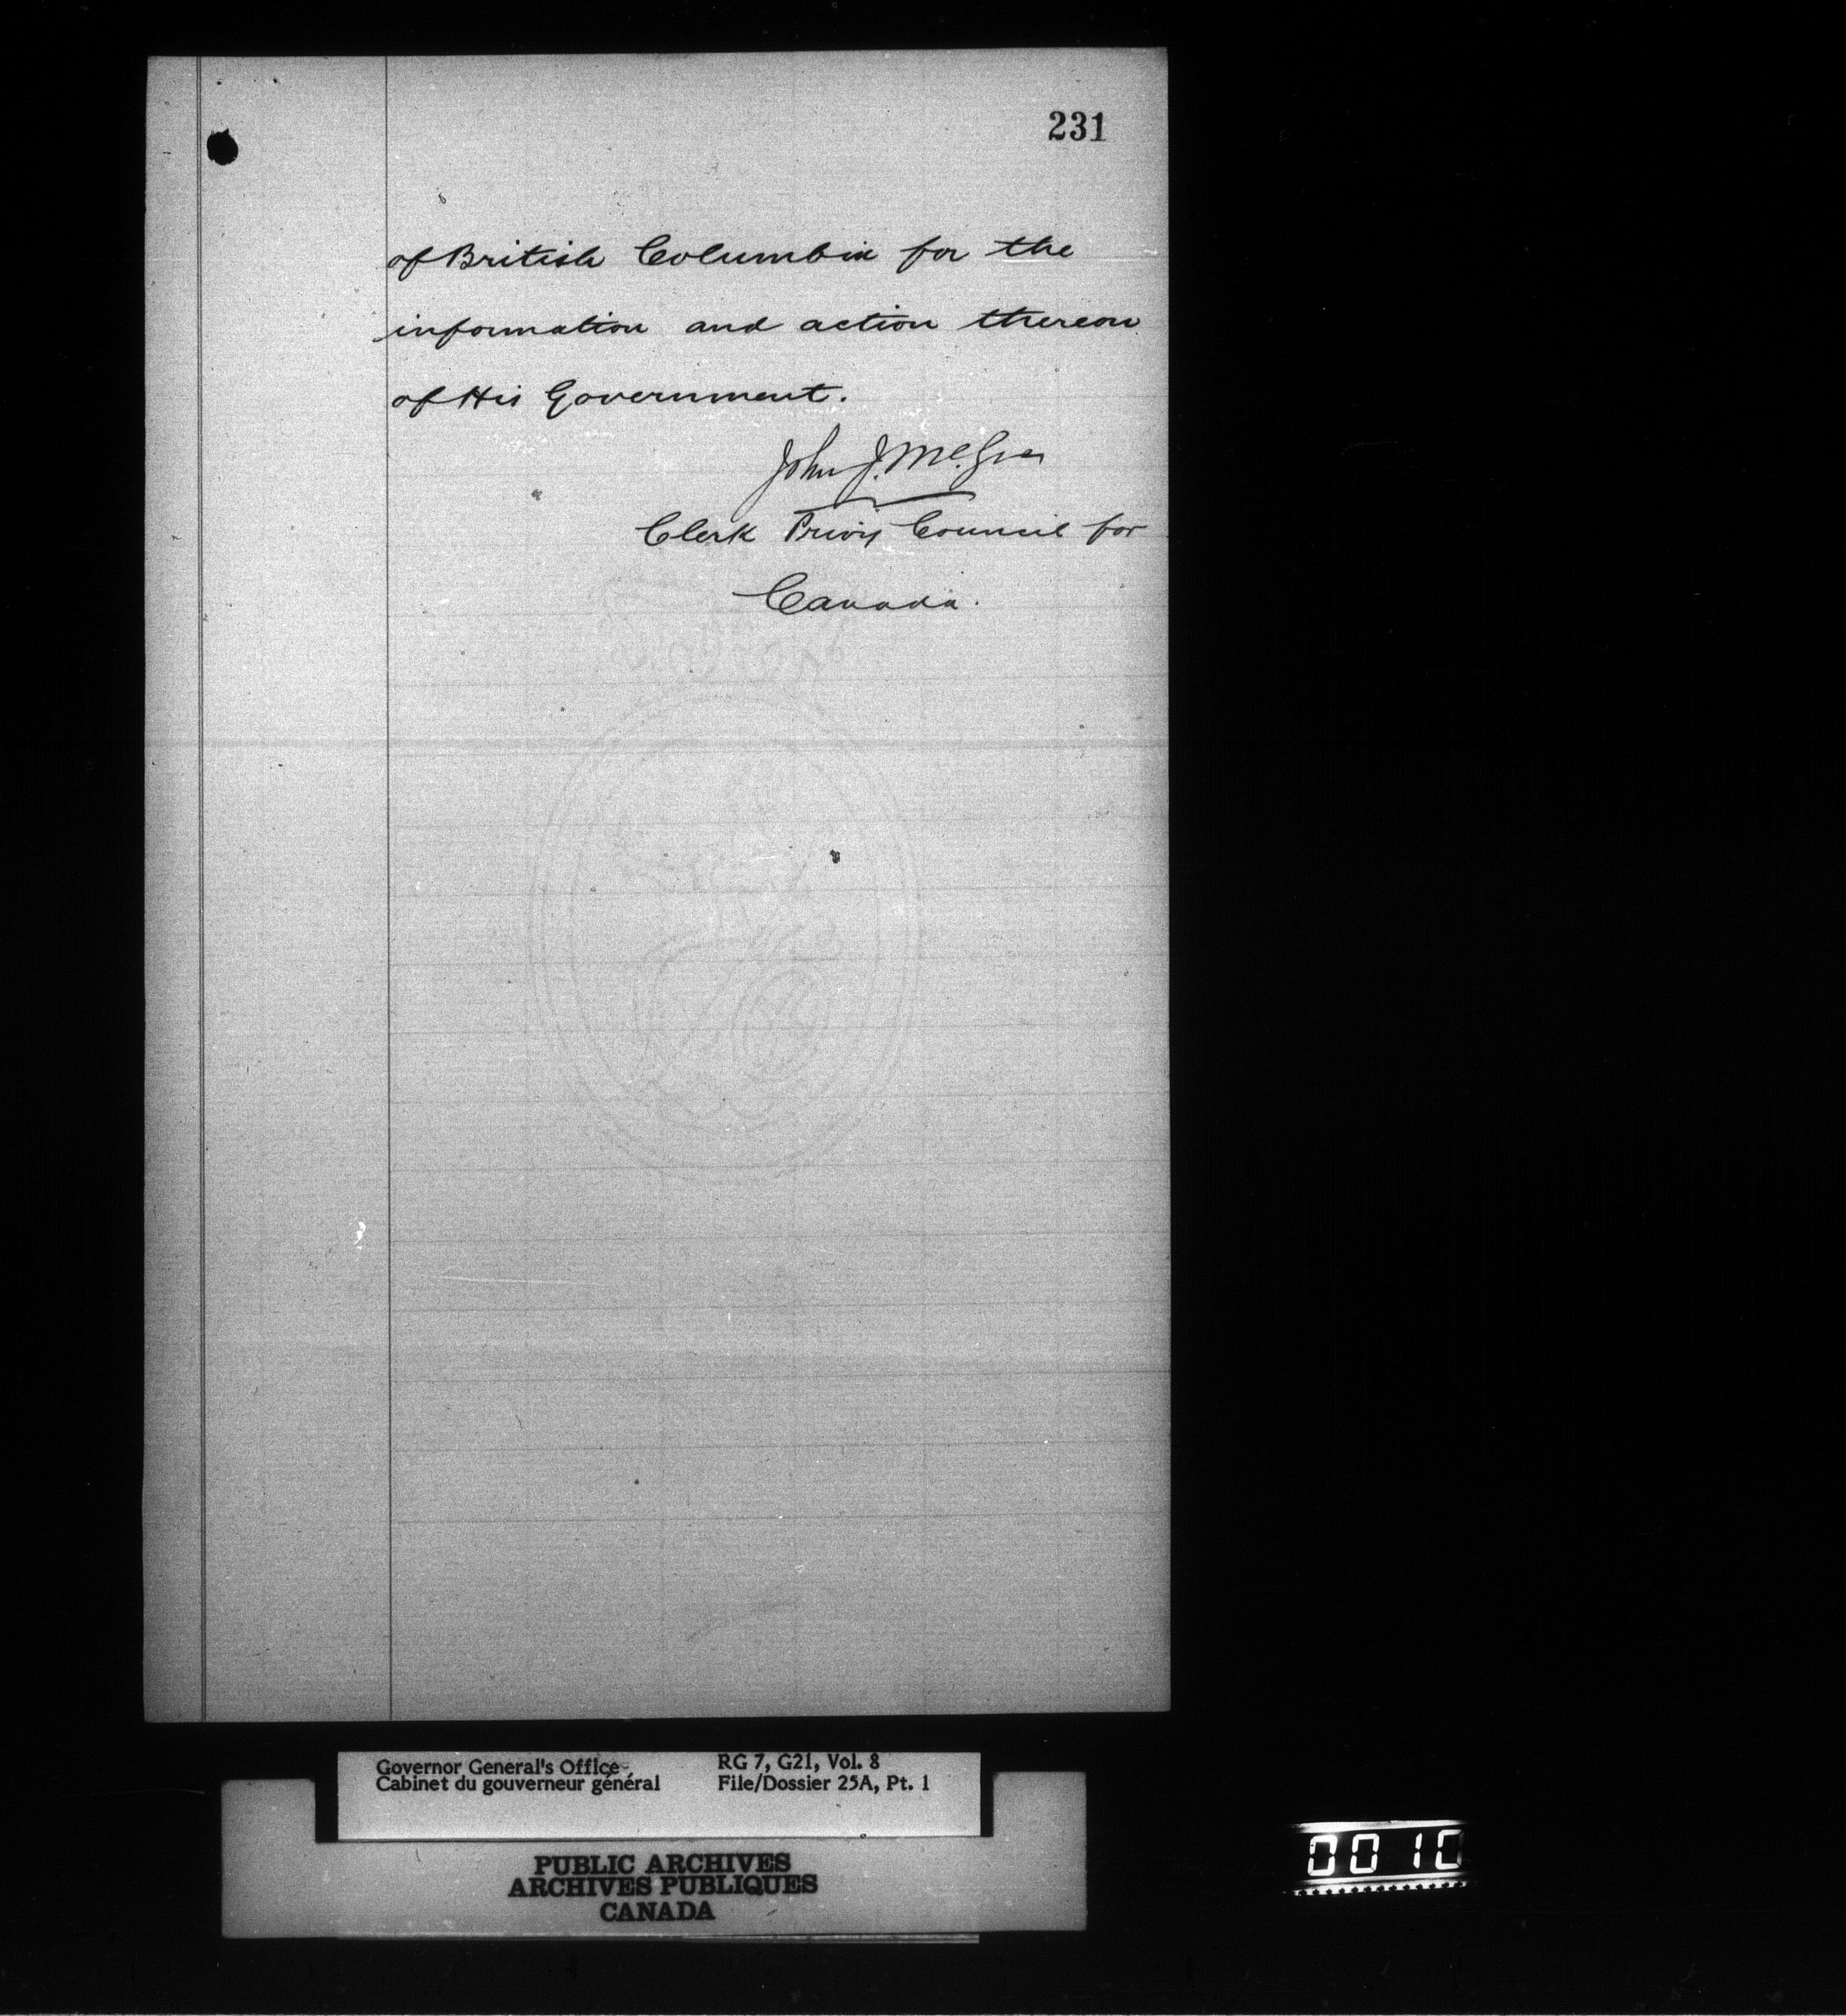 231
of British Columbia for the
information and action thereon
of His Government.
John J. McGee
Clerk Privy Council for
Canada.
Governor General's Office
Cabinet du gouverneur général
RG 7, G21, Vol. 8
File/Dossier 25A, Pt. 1
PUBLIC ARCHIVES
ARCHIVES PUBLIQUES
CANADA
0010